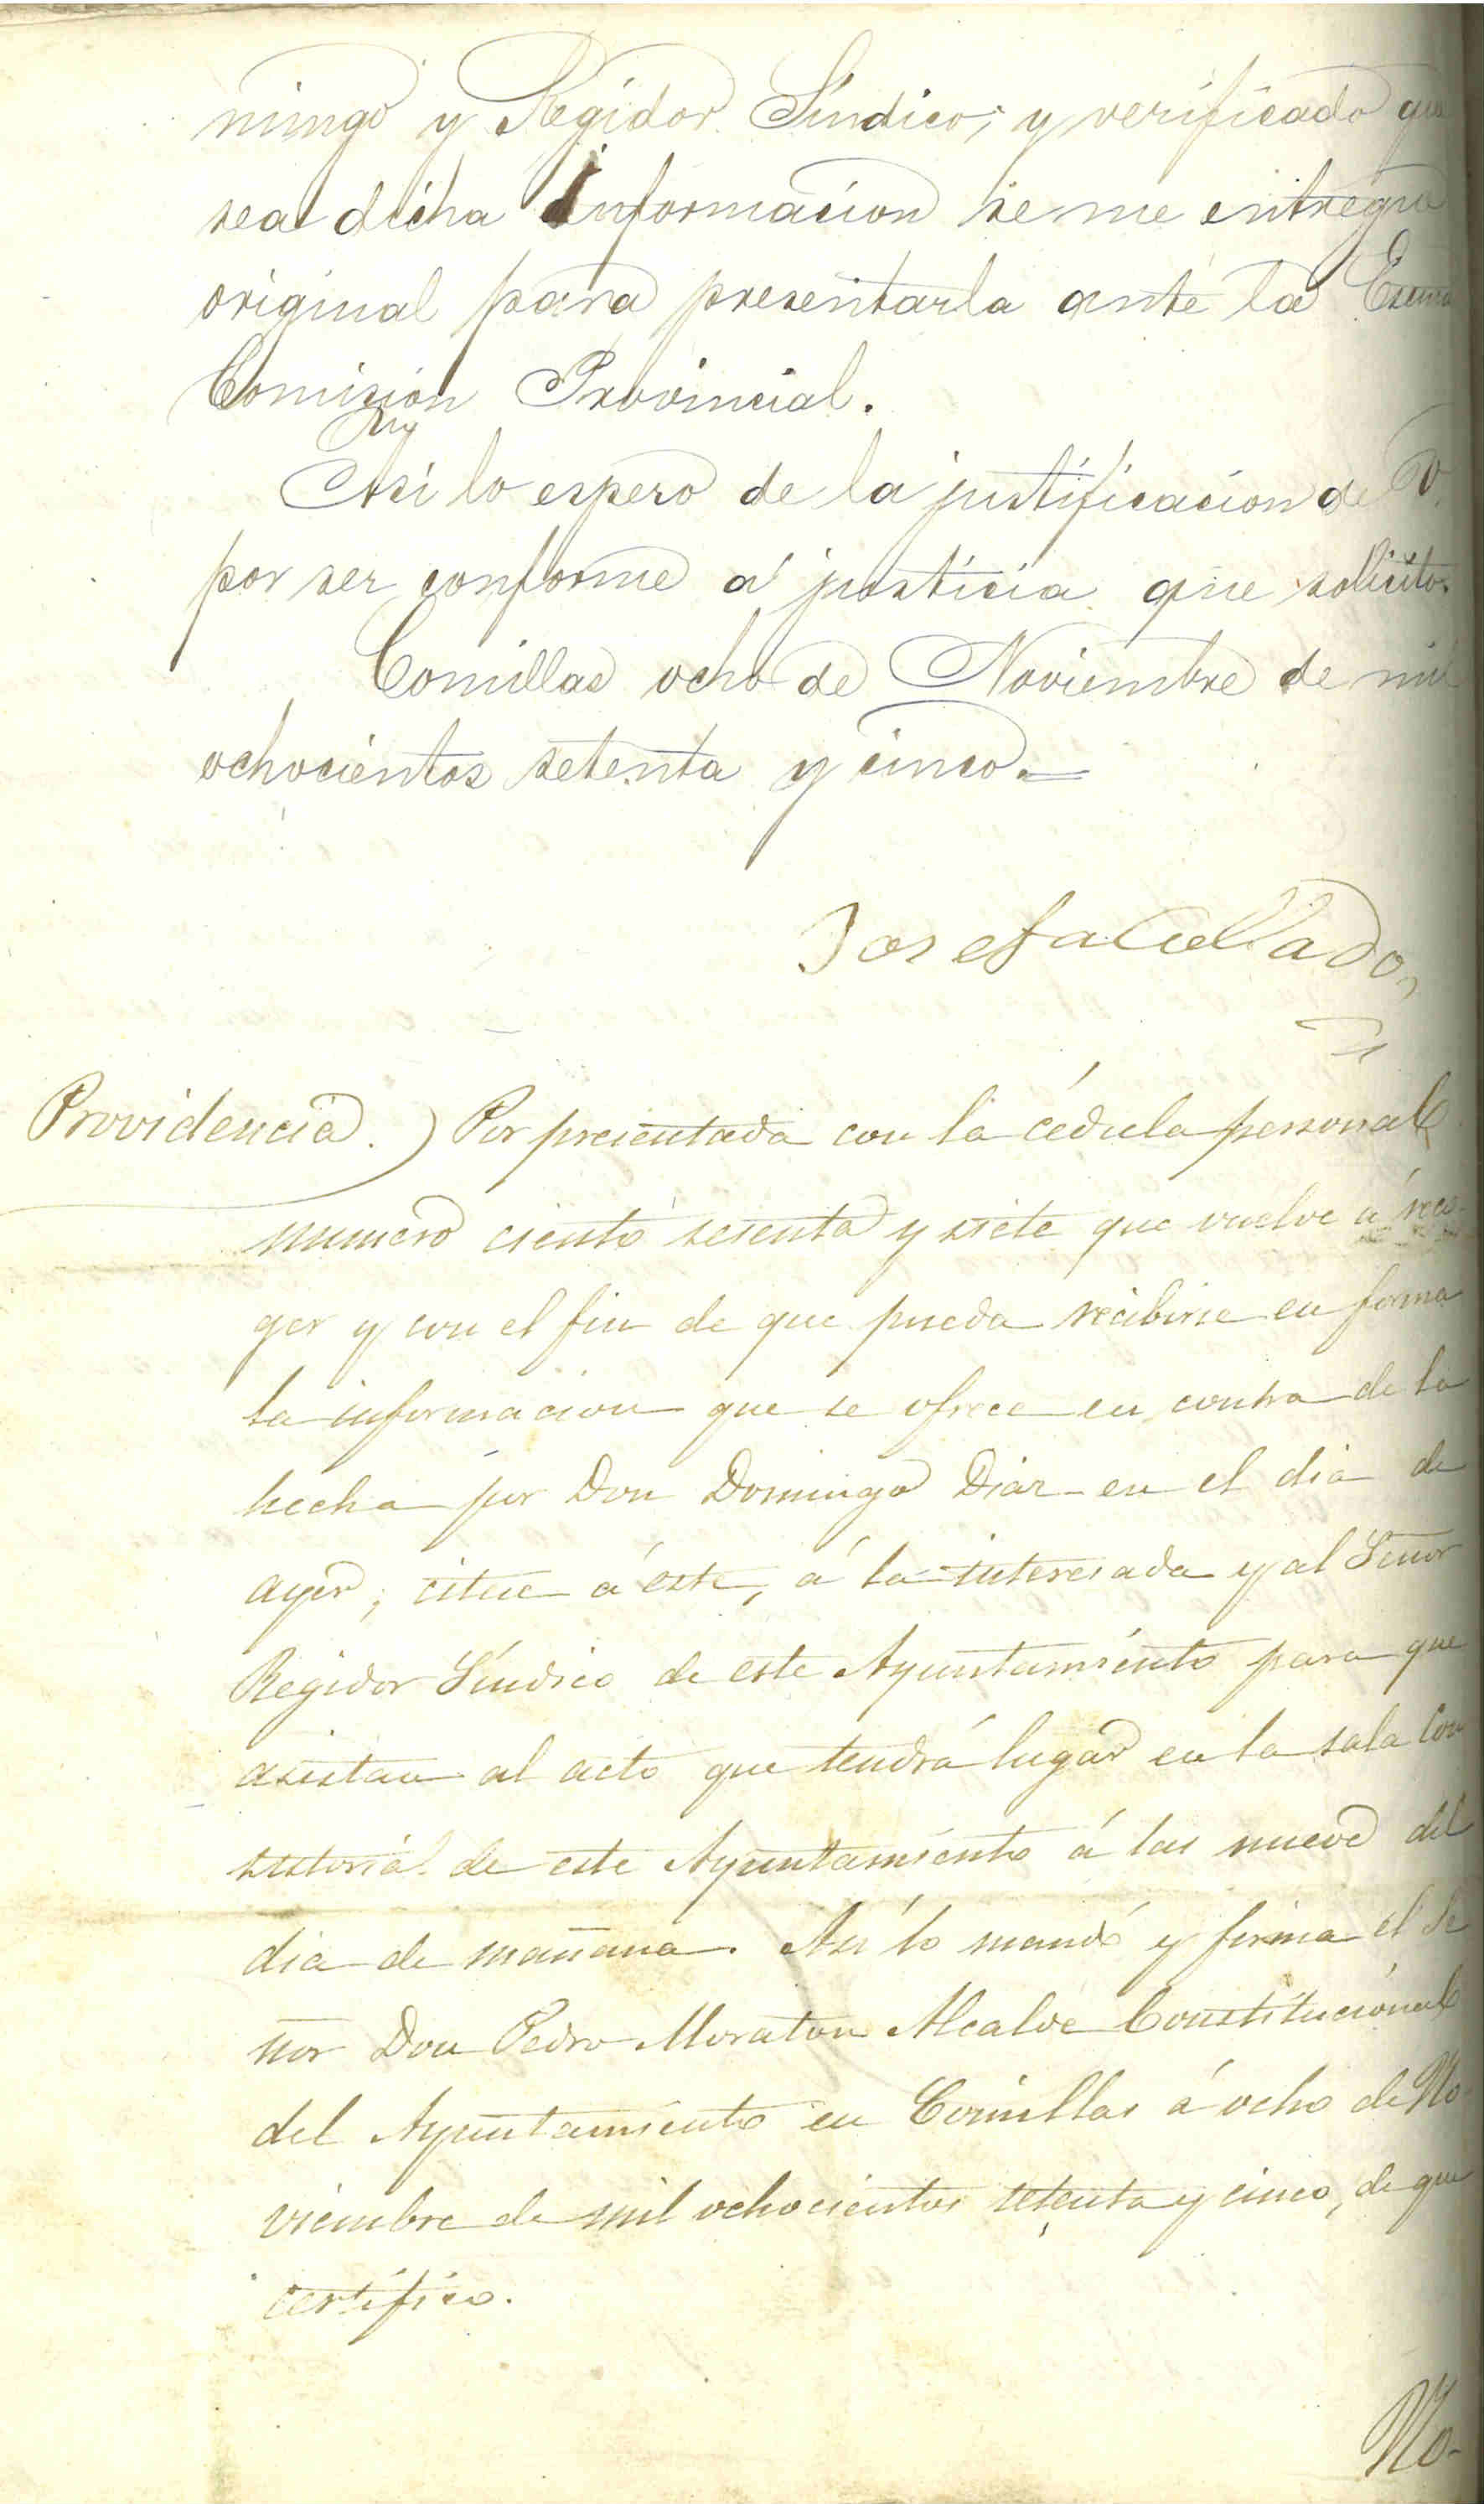 mingo y Regidor Síndico; y verificado que
sea dicha informacion se me entregue
original para presentarla ante la Exema
Comision Provincial.
Asi lo espero de la justificacion de V.
por ser conforme á justicia que solicito.
Comillas ocho de Noviembre de mil
ochocientos setenta y cinco.=
Josefa Collado
Providencia.) Por presentada con la cédula personal
numero ciento sesenta y siete que vuelve á reco-
ger y con el fin de que pueda recibirse en forma
la informacion que se ofrece en contra de la
hecha por Don Domingo Diaz en el dia de
ayer; citese á éste, á la interesada y al Señor
Regidor Síndico de este Ayuntamiento para que
asistan al acto que tendrá lugar en la sala Con
sistorial de este Ayuntamiento á las nueve del
dia de mañana. Asi lo mandó y firma el Se
ñor Don Pedro Moraton Alcalde Constitucional
del Ayuntamiento en Comillas á ocho de No-
viembre de mil ochocientos setenta y cinco, de que
certifico.
No-